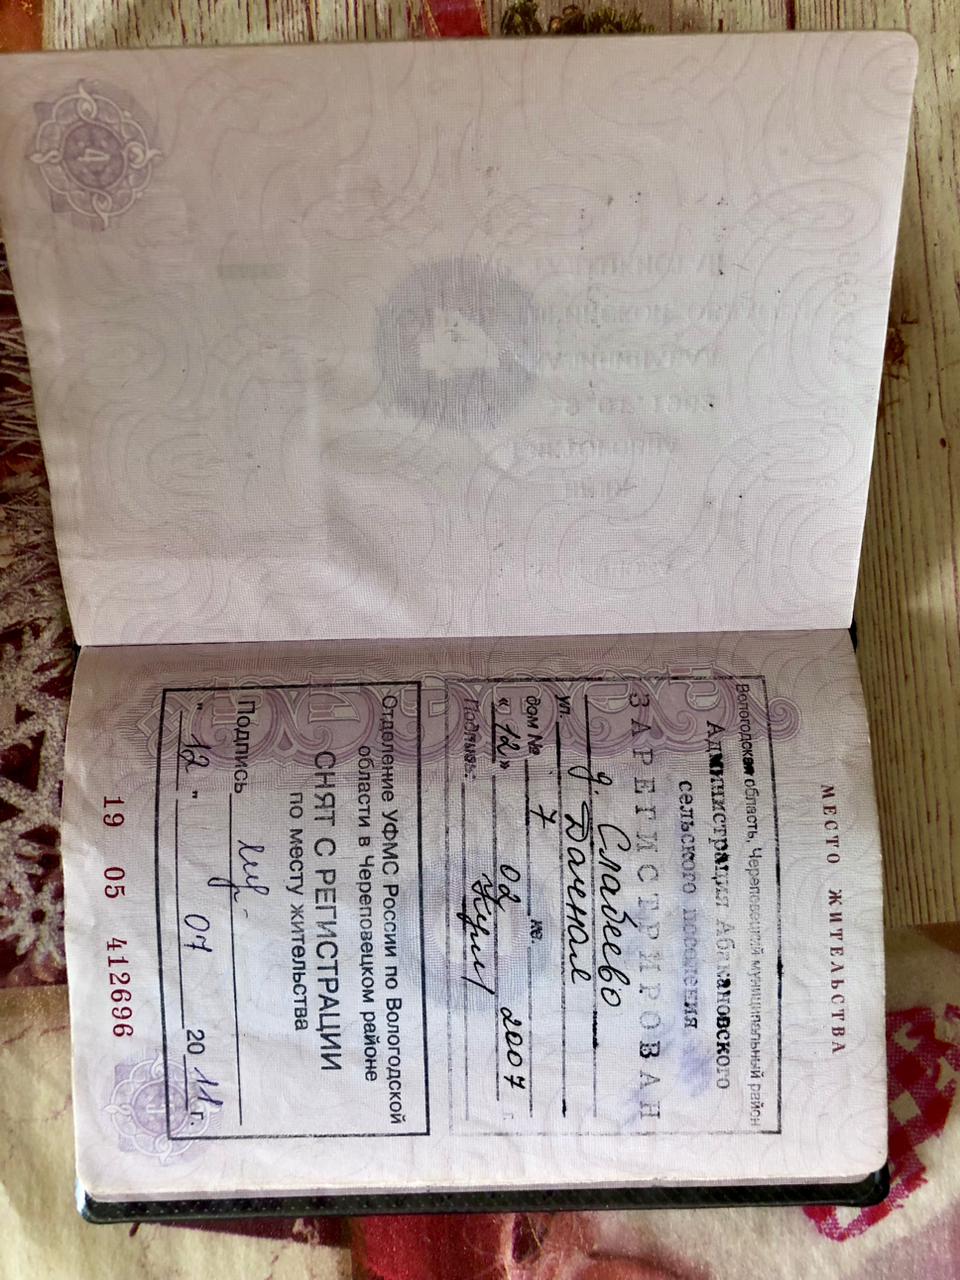 МЕСТО ЖИТЕЛЬСТВА
Вологодская область, Череповецкий муниципальный район
Администрация Абакановского
сельского поселения
ЗАРЕГИСТРИРОВАН
д. Славево
ул. Дачная
дом № 7 кв.
"12" 02 2007 г.
Подпись:
Отделение УФМС России по Вологодской
области в Череповецком районе
СНЯТ С РЕГИСТРАЦИИ
по месту жительства
Подпись
"12" 07 2011 г.
19 05 412696
4